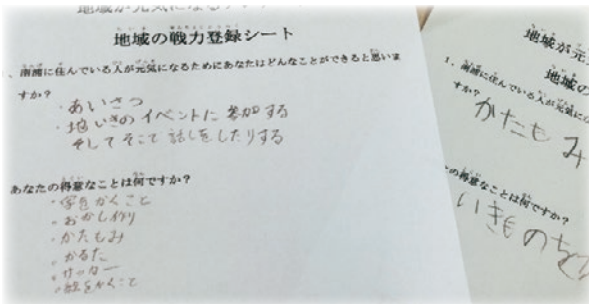 地域が元気になる
地域の戦力登録シート
に住んでいる人が元気になるためにあなたはどんなことができると思いま
すか？
・あいさつ
・地いきのイベントに参加する
そしてそこで話しをしたりする
あなたの得意なことは何ですか？
・字をかくこと
・おかし作り
・かたもみ
・かるた
・サッカー
・絵をかくこと
地域が元
地域の
1、
に住んでいる人が元気に
すか？
かたもみ
の得意なことは何ですか？
いきものを